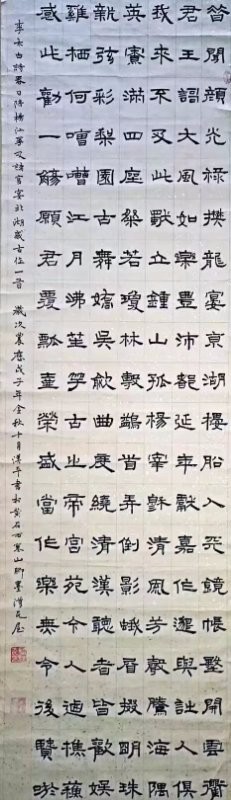 昔聞顏光祿攀龍宴京湖樓船入天鏡帳殿開雲衢
君王謌大風如樂豐沛都延年獻嘉作邈與詩人俱
我來不及此獨立鍾山孤楊宰穆清風芳聲騰海隅
英寮滿四座粲若瓊林敷鷁首弄倒影蛾眉掇明珠
新弦彩梨園古舞嬌吳歈曲度繞清漢聽者皆歡娛
雞栖何嘈嘈江月沸笙竽古之帝宮苑今人迺樵蘇
感此勸一觴願君覆瓢壺榮盛當作樂無令後賢吁
李白古詩春日陪楊江寧及諸官宴北湖感古作一首 歲次農曆戊子年金秋十月漢平書於黃石西塞山